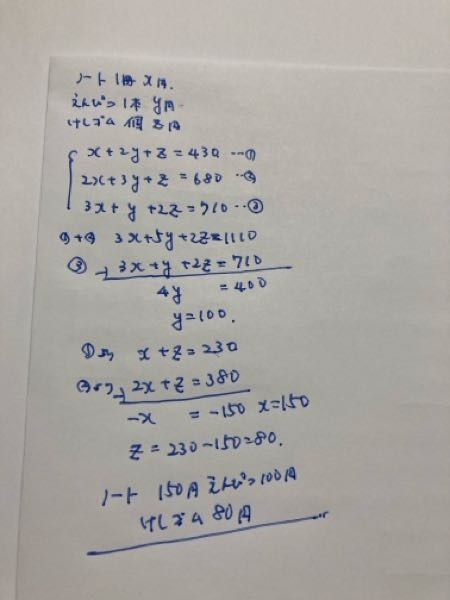 ノート 1冊 x円.
えんぴつ 1本 y円.
けしゴム 1個 z円
x+2y+z=430 …①
2x+3y+z=680 …②
3x+y+2z=710 …③
①+② 3x+5y+2z=1110
③ -) 3x+y+2z=710
4y =400
y=100.
①より x+z=230
②より -) 2x+z=380
-x =-150 x=150
z=230-150=80.
ノート 150円 えんぴつ100円
けしゴム 80円